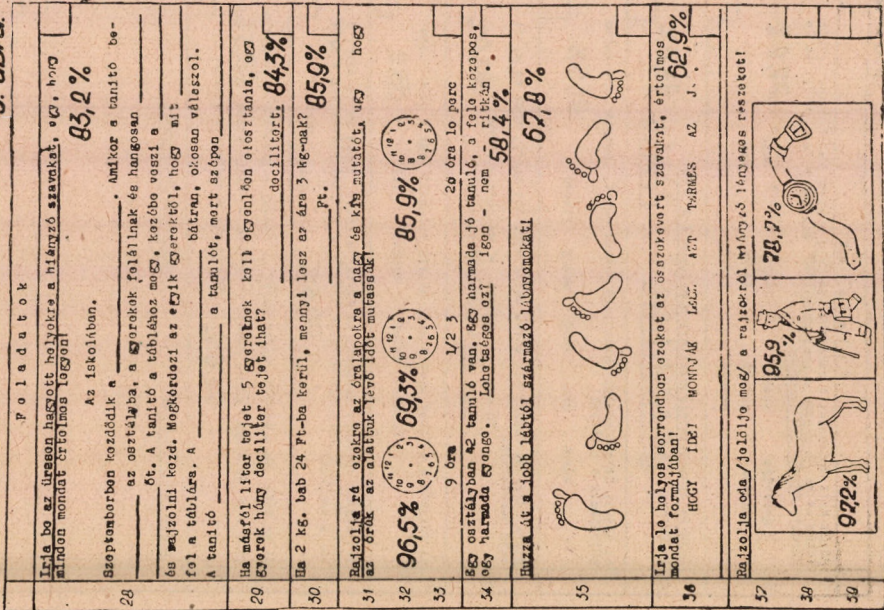 5. ábra.
Feladatok
28
Irja be az üresen hagyott helyekre a hiányzó szavakat, ugy, hogy
minden mondat értelmes legyen!
83,2%
Az iskolában.
Szeptemberben kezdődik a . Amikor a tanitó be-
az osztályba, a gyerekek felállnak és hangosan
őt. A tanitó a táblához megy, kezébe veszi a
és rajzolni kezd. Megkérdezi az egyik gyerektől, hogy mit
fel a táblára. A bátran, okosan válaszol.
A tanitó a tanulót, mert szépen
29
Ha másfél liter tejet 5 gyereknek kell egyenlően elosztania, egy
gyerek hány deciliter tejet ihat? deciliter. 84,3%
30
Ha 2 kg. bab 24 Ft-ba kerül, mennyi lesz az ára 3 kg-nak? 85,9%
Ft.
31
Rajzolja rá ezekre az óralapokra a nagy és kis mutatót, ugy hogy
az órák az alattuk lévő időt mutassák!
32
96,5% 69,3% 85,9%
33
9 óra 1/2 3 20 óra 10 perc
34
Egy osztályban 42 tanuló van. Egy harmada jó tanuló, a fele közepes,
egy harmada gyenge. Lehetséges ez? igen - nem - ritkán.
58,4%
35
Huzza át a jobb lábtól származó lábnyomokat!
67,8%
36
Irja le helyes sorrendben ezeket az összekevert szavakat, értelmes
mondat formájában!
HOGY IDEI MONDJÁK LESZ AZT TERMÉS AZ JÓ. 62,9%
Rajzolja oda/jelölje meg/ a rajzokról hiányzó lényeges részeket!
37
38
39
97,2%
95,9%
78,7%